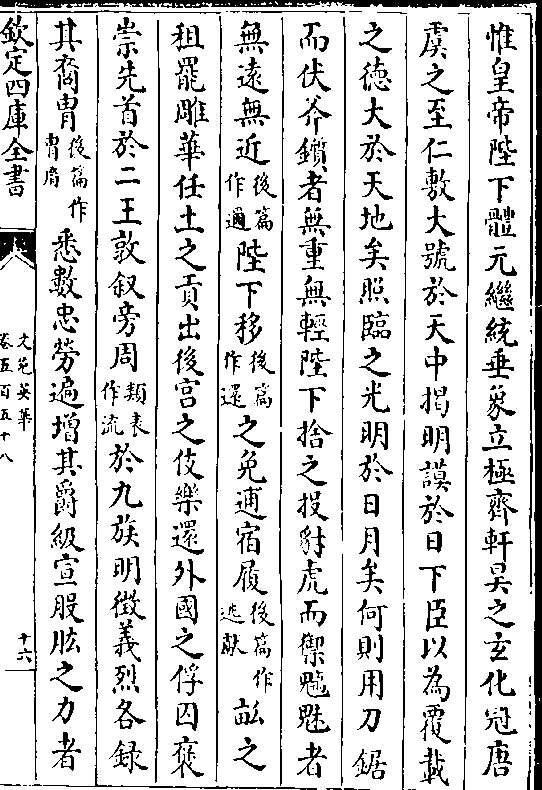 惟皇帝陛下體元繼統垂象立極齊軒昊之玄化冠唐
虞之至仁敷大號於天中揭明謨於日下臣以為覆載
之德大於天地矣照臨之光明於日月矣何則用刀鋸
而伏斧鑕者無重無輕陛下捨之投豺虎而禦魑魅者
無遠無近後篇作邇陛下移後篇作還之免逋宿履後篇作逃歇畝之
租罷雕華任土之貢出後宮之伎樂還外國之俘囚褒
崇先首於二王敦叙旁周類表作流於九族明徵義烈各録
其裔胄後篇作胄裔悉數忠勞遍增其爵級宣股肱之力者
欽定四庫全書
文苑英華
卷五百五十八
十六